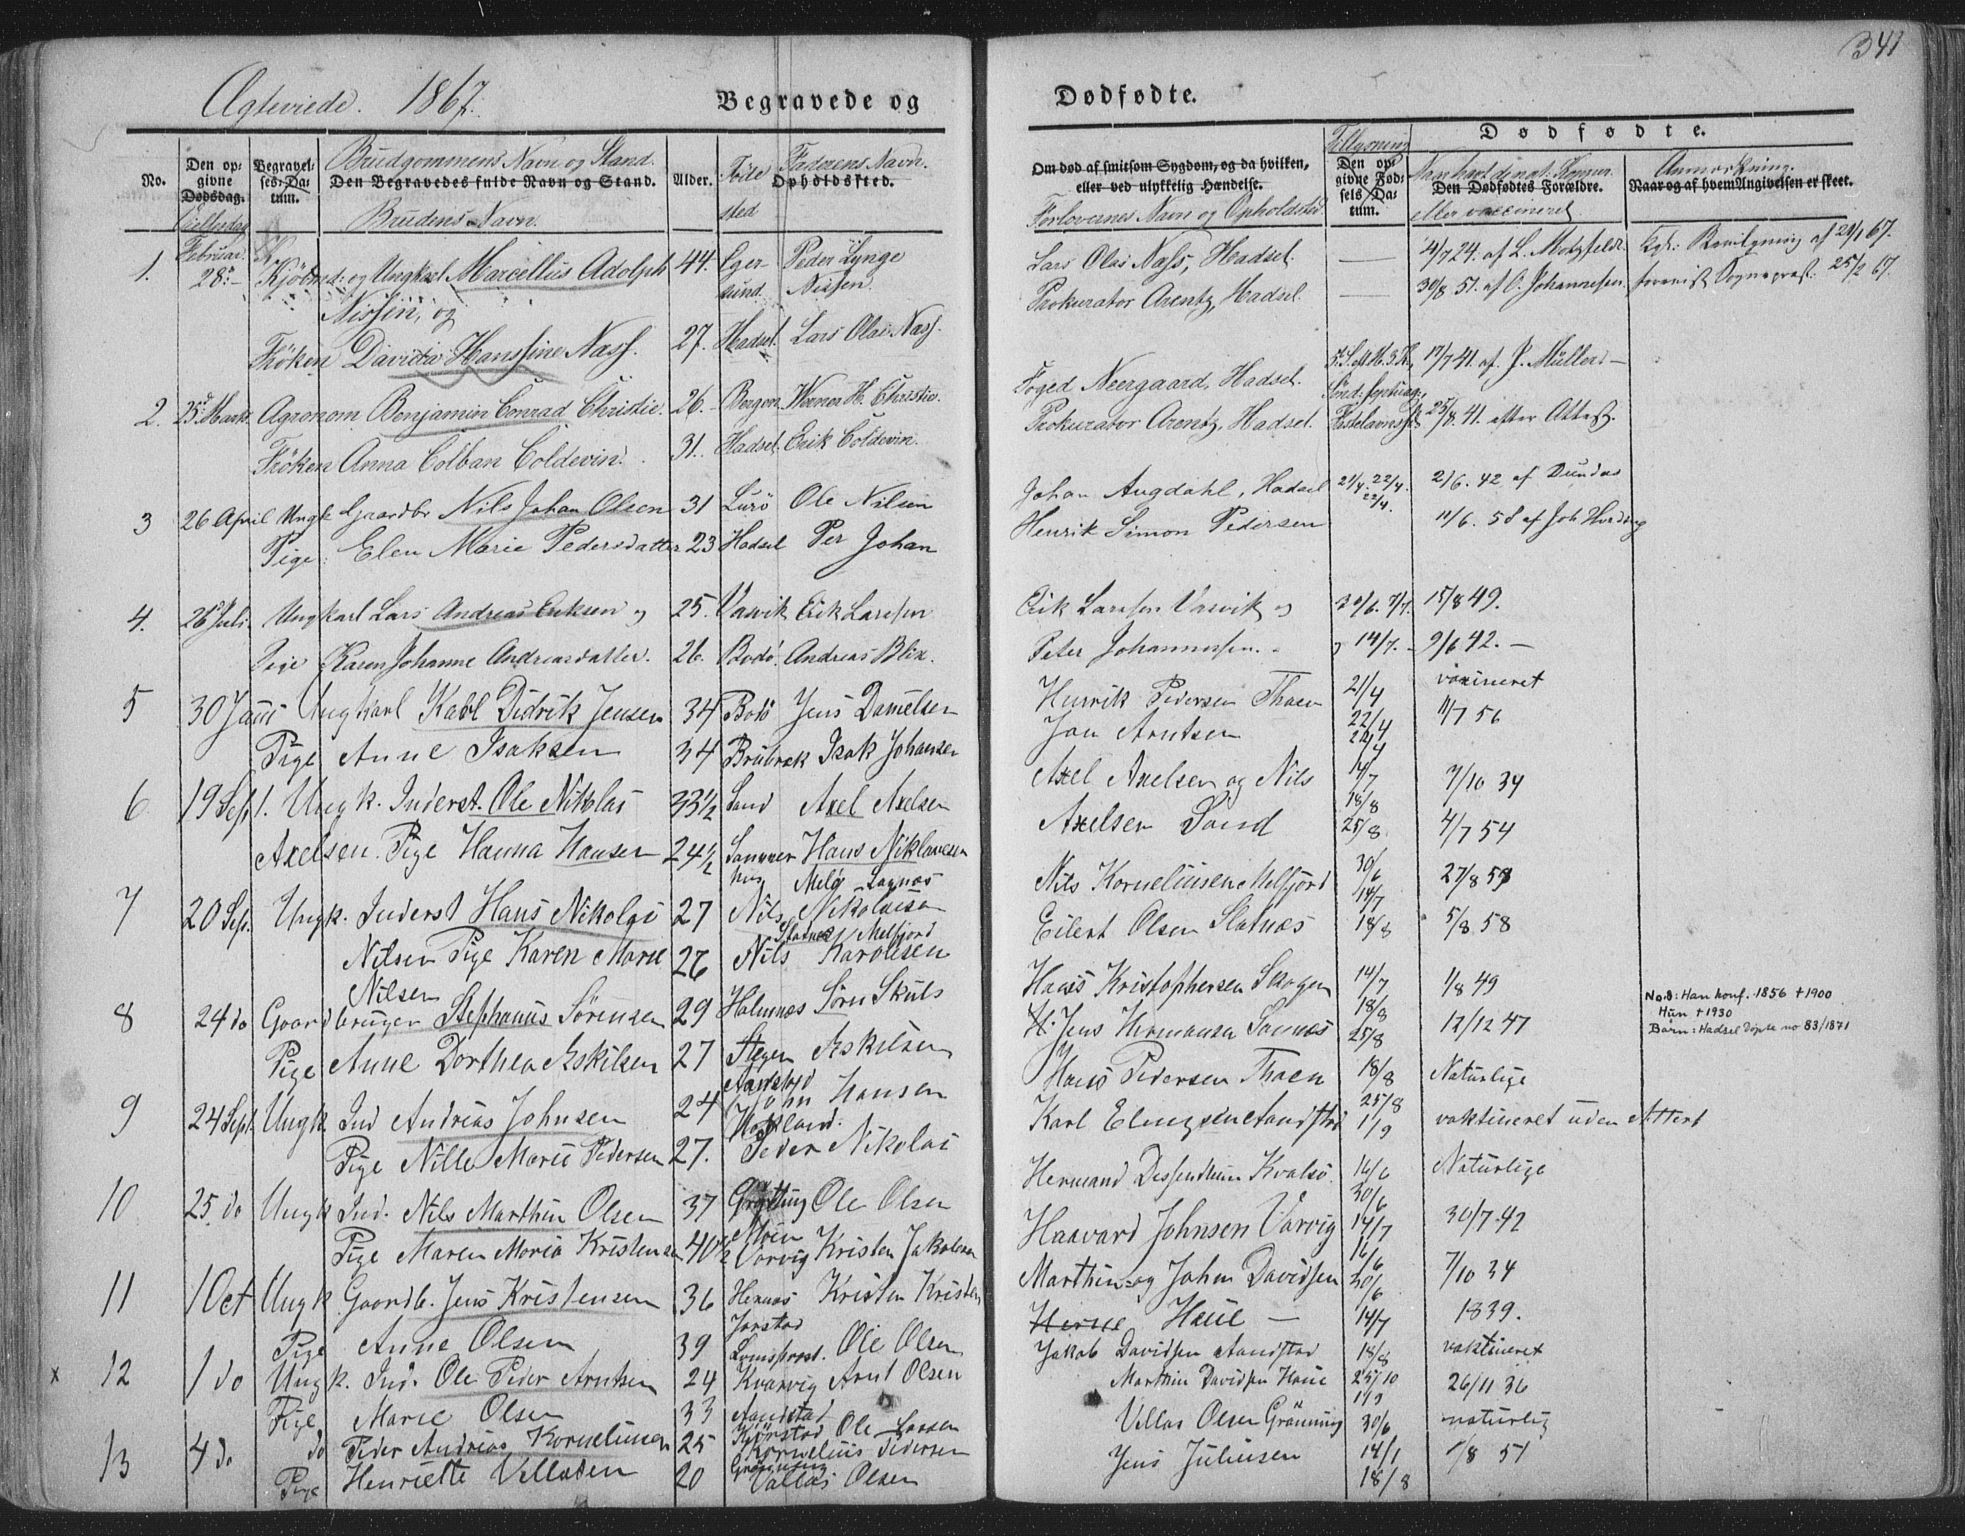 341
Ægteviede. 1867.
Begravede og
Dødfødte.
No.
Den opgivne Dødsdag.
Vielsesdag
Begravelses-Datum.
Brudgommens Navn og Stand.
Den Begravedes fulde Navn og Stand.
Brudens Navn.
Alder.
Födested
Faderens Navn.
Opholdssted.
Om død af smitsom Sygdom, og da hvilken,
eller ved ulykkelig Hændelse.
Forlovernes Navn og Opholdsted
Tillysning
Den opgivne Fødsels Datum.
Dødfødte.
Den Dødfødtes Forældre.
eller vaccineret
Anmærkning.
Naar og af hvem Angivelsen er skeet.
1. Februar 28de Kjöbmd: og Ungksl. Marcellus Adolph 44. Egersund. Peder Lynge Nissen
Nissen, og
Fröken Davida Hanssine Næss. 27. Hadsel Lars Olai Næss.
Lars Olai Næss, Hadsel. — 4/7 24. af L. Motzfeldt. Kgl: Bevilgning af 29/1 67.
Prokurator Arentz, Hadsel. — 30/8 57. af O. Johannesen Sognepræst. 25/2 67.
2. 25de Marts Agronom Benjamin Conrad Christie. 26. Bergen Werner H. Christie.
Fröken Anna Colban Coldevin. 31. Hadsel. Erik Coldevin.
Foged Neergaard, Hadsel. 17/7 41. af P. Müller. —
Prokurator Arentz, Hadsel. Fastelavns 25/8. 41. efter Attest.
3 26 April Ungk Gaardbr Nils Johan Olsen 31 Lurö Ole Nilsen
Pige: Elen Marie Pedersdatter 23 Hadsel Per Johan
Johan Augdahl, Hadsel 21/4. 22/4. 22/4. 21/6. 42 af Dundas
Henrik Simon Pedersen 11/6. 58 af Joh Hveding
4. 26 Juli. Ungkarl Lars Andreas Eriksen og 25. Vasvik Erik Larssen
Pige Karen Johanne Andreasdatter. 26. Bodö. Andreas Blix.
Erik Larssen Vasvik og 30/6. 7/7. 15/8 49.
Peter Johannessen. - 14/7. - 9/6 42. —
5 30 Juni Ungkarl Karl Didrik Jensen 34 Bodö Jens Danielsen
Pige Anne Isaksen 34 Isak Johansen
Henrik Pedersen Thaen 21/4 vaxineret
Jon Arntsen 22/4 11/7 56
6 19 Sept. Ungk. Inderst. Ole Nikolai 33 1/2 Sand Axel Axelsen
Axelsen. Pige Hanna Hansen 24 1/2 Hans Niklavesen
Axel Axelsen og Nils 14/7 7/10 34
Axelsen Sand 18/8 25/8 4/7 54
7 20 Sep. Ungk. Inderst Hans Nikolai 27 Nils Nikolaisen
Nilsen Pige Karen Marie 26 Nils Karolesen
Nilsen
Nils Korneliusen Melfjord 30/6 14/7 27/8 59
Eilert Olsen Slatnes 18/8 5/8 58
8 24 do Gaardbruger Stephanus Sörensen 29 Holmnæs Sörn Skuls
Pige Anne Dorthea Eskilsen 27 Stegen Eskilsen
Hans Kristophersen Skogen 14/7 18/8 1/8 49
Jens Hermansen Savnæs 25/8 12/12 47
No. 8: Han konf. 1856 +1900
Hun +1930
Barn: Hadsel döpte no 83/1871
9 24 Sept. Ungk Ind Andreas Johnsen 24 John Hansen
Pige Nille Marie Pedersen 27. Peder Nikolai
Hans Pedersen Thaen 18/8 25/8 Naturlige
Karl 1/9 vaktineret uden Attest
10 25. do Ungk Ind. Nils Marthin Olsen 37 Grytting Ole Olsen
Pige Maren Maria Kristensen 40 1/2 Vorvig Kristen Jakobsen
Hermand Kvalsö 16/6 30/6 Naturlige
Haavard Johnsen Vorvig 14/7 30/7 42
11 1 Oct Ungk Gaardb. Jens Kristensen 36 Kristen Kristen
Pige Anne Olsen 39 Ole Olsen
Marthin og Johan Davidsen 16/6 30/6 7/10 34
Haue — 14/7 1839.
x 12 1 do Ungk. Ind. Ole Peder Arntsen 24 Kvarvig Arnt Olsen
Pige Marie Olsen 33 Aandstad Ole Larsen
Jakob Davidsen Aandstad 18/8 vaktineret
Marthin Davidsen Haue 25/10 26/11 36
13 4 do do Peder Andreas Korneliusen 25 Kornelius Pedersen
Pige Henriette Velladsen 20 Grönning Vallas Olsen
Vellas Olsen Grönning 30/6 naturlig
Jens Juliusen 14/1 18/8 1/8 51